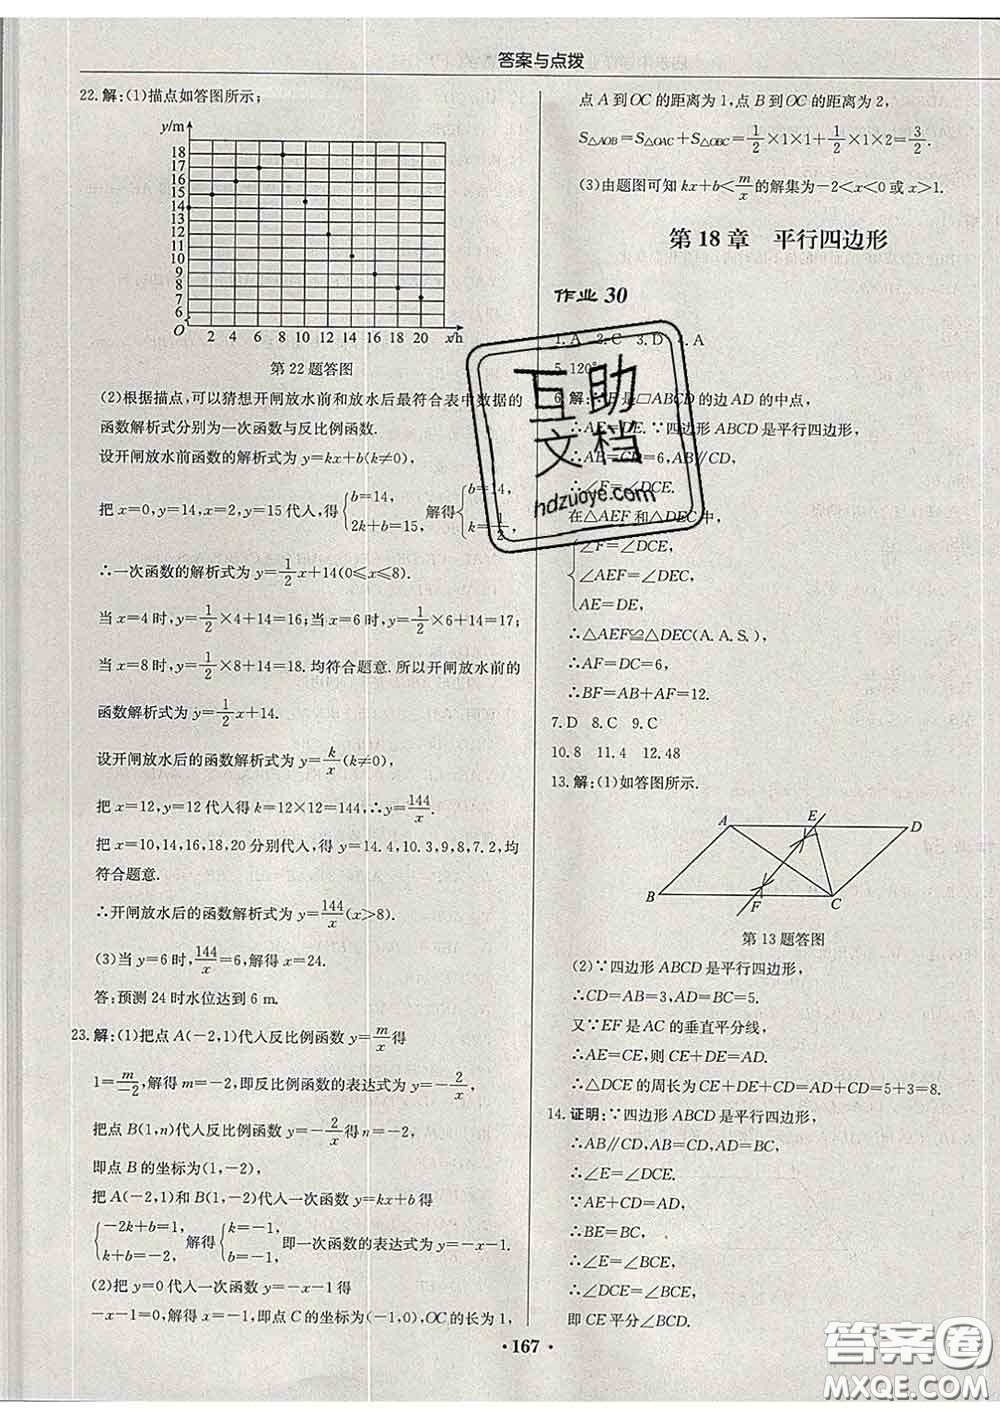 答案与点拨
22.解:(1)描点如答图所示;
y/m
18
17
16
15
14
13
12
11
10
9
8
7
6
O 2 4 6 8 10 12 14 16 18 20 x/h
第22题答图
(2)根据描点,可以猜想开闸放水前和放水后最符合表中数据的
函数解析式分别为一次函数与反比例函数.
设开闸放水前函数的解析式为y=kx+b(k≠0),
把x=0,y=14,x=2,y=15代入,得{b=14, 2k+b=15, 解得{b=14, k=1/2,
∴一次函数的解析式为y=1/2x+14(0≤x≤8).
当x=4时,y=1/2×4+14=16;当x=6时,y=1/2×6+14=17;
当x=8时,y=1/2×8+14=18.均符合题意.所以开闸放水前的
函数解析式为y=1/2x+14.
设开闸放水后的函数解析式为y=k/x(k≠0),
把x=12,y=12代入得k=12×12=144,∴y=144/x.
把x=10,14,16,18,20分别代入,得y=14.4,10.3,9,8,7.2,均
符合题意.
∴开闸放水后的函数解析式为y=144/x(x>8).
(3)当y=6时,144/x=6,解得x=24.
答:预测24时水位达到6 m.
23.解:(1)把点A(-2,1)代入反比例函数y=m/x得
1=m/-2,解得m=-2,即反比例函数的表达式为y=-2/x,
把点B(1,n)代入反比例函数y=-2/x得n=-2,
即点B的坐标为(1,-2),
把A(-2,1)和B(1,-2)代入一次函数y=kx+b得
{-2k+b=1, k+b=-2, 解得{k=-1, b=-1, 即一次函数的表达式为y=-x-1.
(2)把y=0代入一次函数y=-x-1得
-x-1=0,解得x=-1,即点C的坐标为(-1,0),OC的长为1,
点A到OC的距离为1,点B到OC的距离为2,
S△AOB=S△OAC+S△OBC=1/2×1×1+1/2×1×2=3/2.
(3)由题图可知kx+b<m/x的解集为-2<x<0或x>1.
第18章 平行四边形
作业30
1.A 2.C 3.D 4.A
5.120°
6.解:∵E是□ABCD的边AD的中点,
∴AE=DE.∵四边形ABCD是平行四边形,
∴AB=CD=6,AB∥CD,
∴∠F=∠DCE.
在△AEF和△DEC中,
{∠F=∠DCE,
∠AEF=∠DEC,
AE=DE,
∴△AEF≌△DEC(A.A.S.),
∴AF=DC=6,
∴BF=AB+AF=12.
7.D 8.C 9.C
10.8 11.4 12.48
13.解:(1)如答图所示.
A E D
B F C
第13题答图
(2)∵四边形ABCD是平行四边形,
∴CD=AB=3,AD=BC=5.
又∵EF是AC的垂直平分线,
∴AE=CE,则CE+DE=AD.
∴△DCE的周长为CE+DE+CD=AD+CD=5+3=8.
14.证明:∵四边形ABCD是平行四边形,
∴AB∥CD,AB=CD,AD=BC,
∴∠E=∠DCE.
∵AE+CD=AD,
∴BE=BC,
∴∠E=∠BCE,
∴∠DCE=∠BCE,
即CE平分∠BCD.
• 167 •
互助
文档
hdzuoye.com
答案圈
MXQE.COM